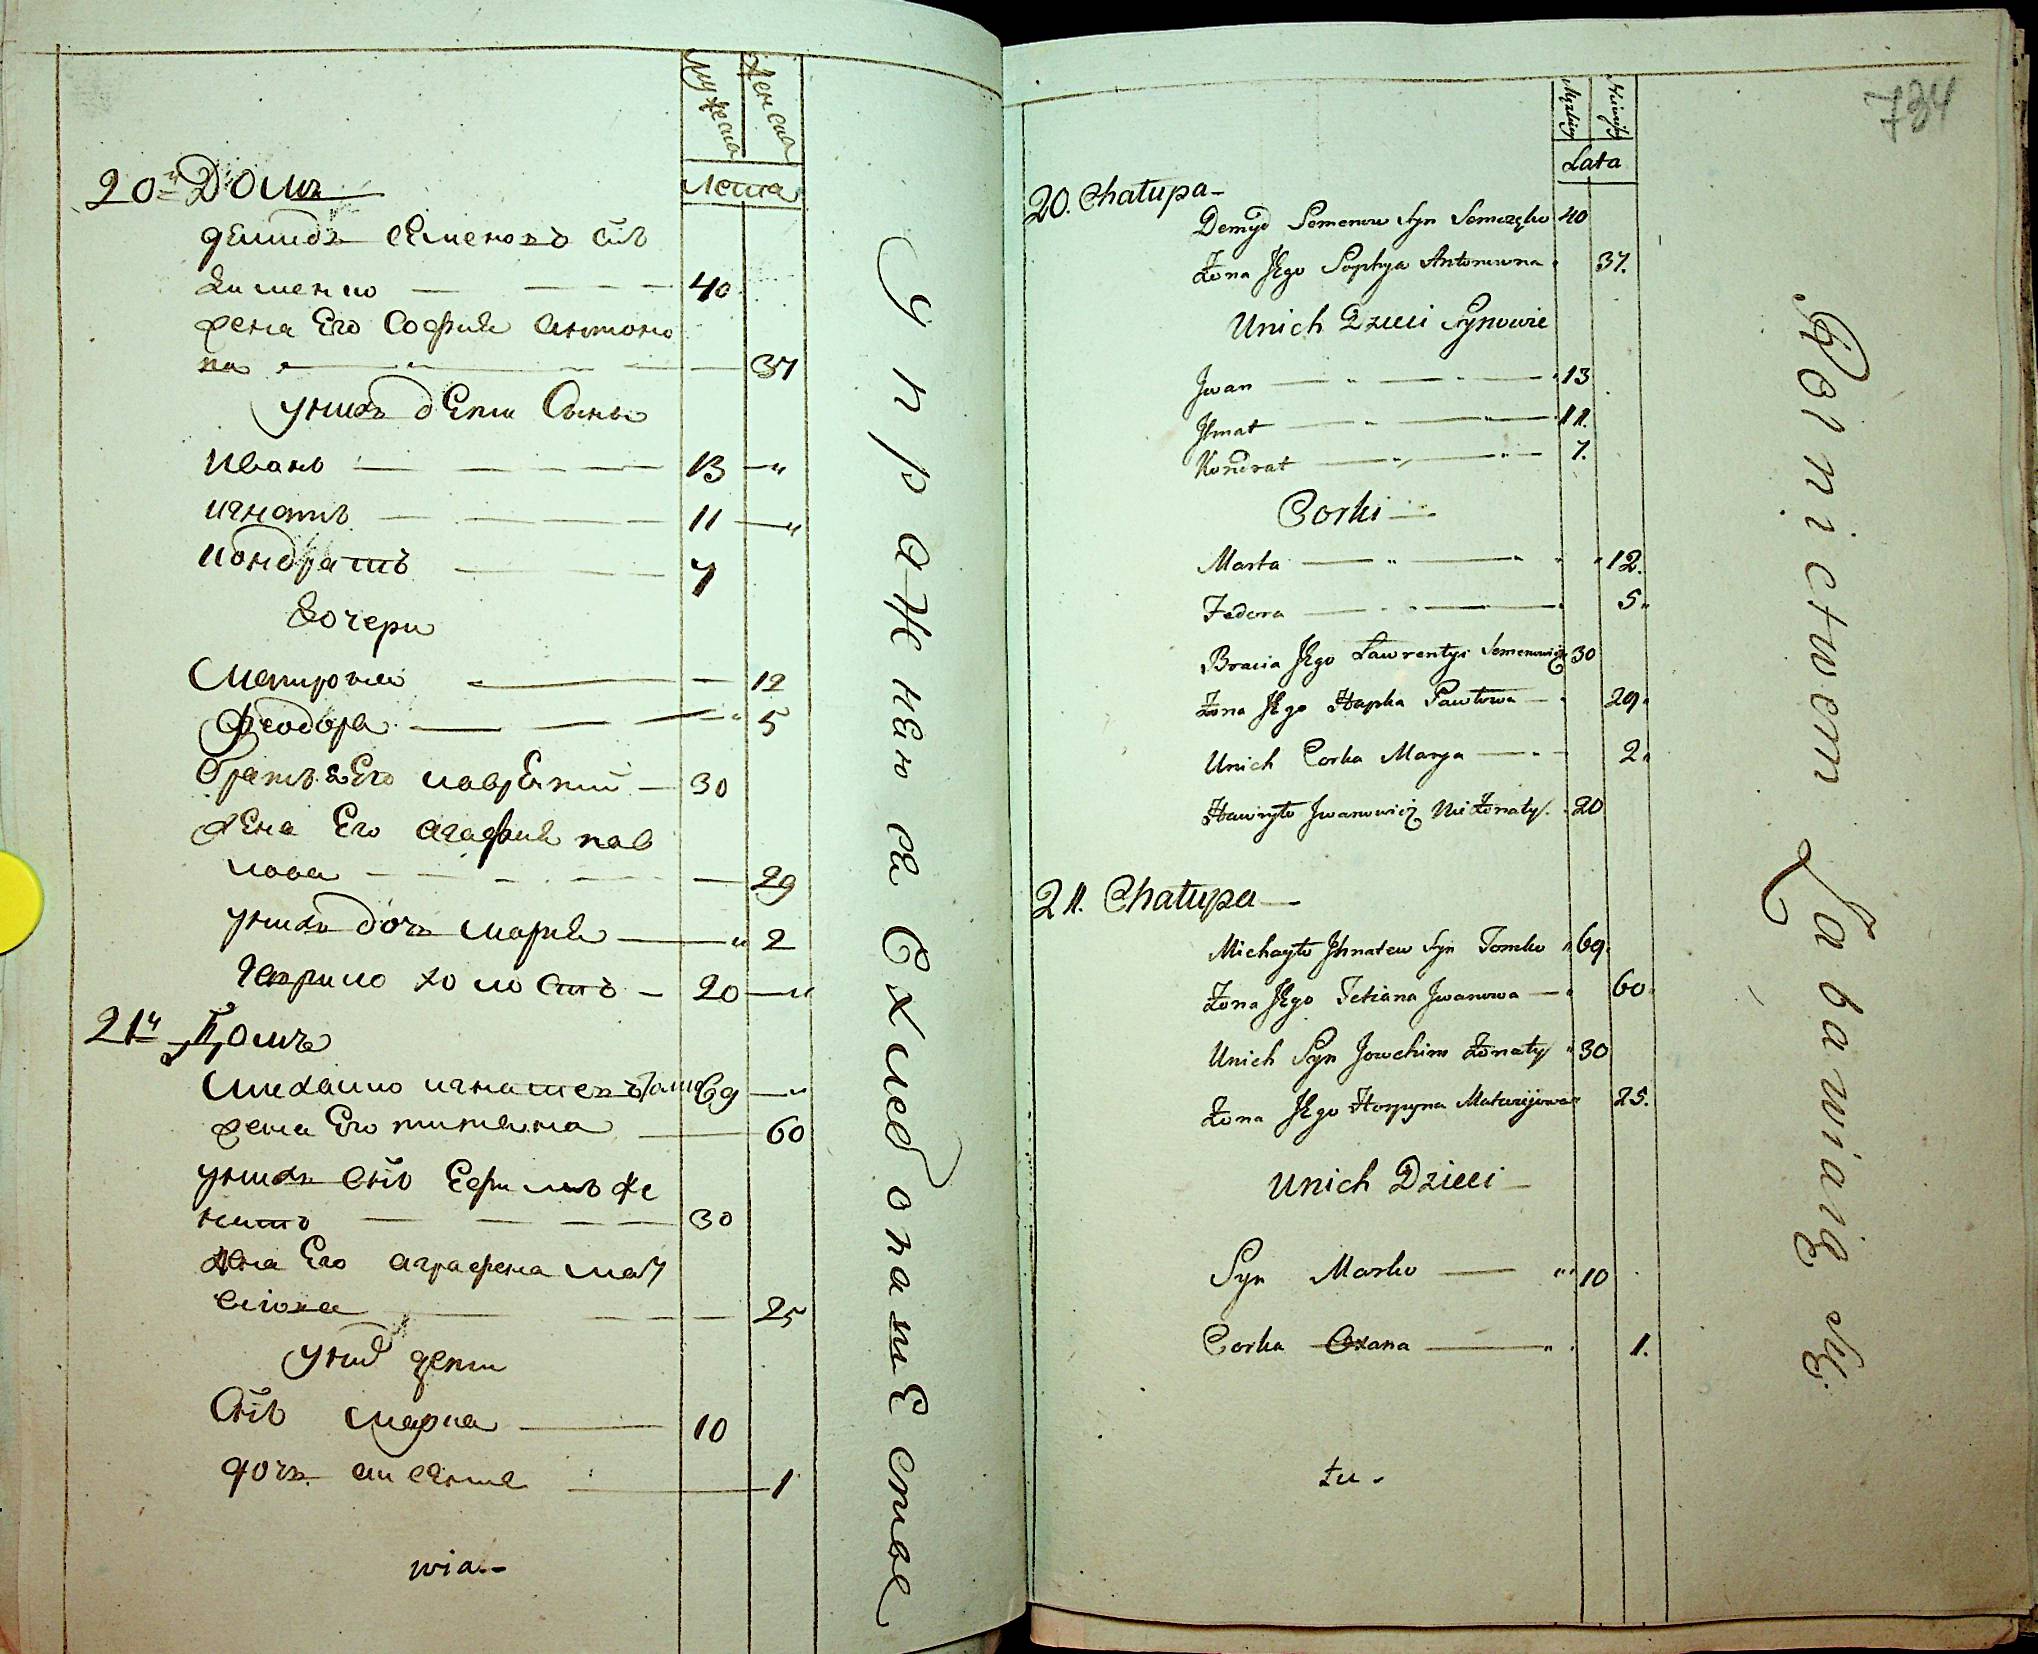 Мужеска
Женска
Лета
20й Домъ
Демидъ Семеновъ снъ
Зименко 40
жена Его София Антоно
па 37
униxъ дети Сыны
Иванъ 13 "
Игнатъ 11 "
Кондратъ 7
Дочери
Матрона 12
Феодора 5
братъ Его лаврЕнтий 30
жЕна Его агафия пав
лова 29
унихъ дочъ Мария 2
Гаврило холостъ 20 "
21й Домъ
Михайло игнатевъ 69 "
жена Его титяна 60
унихъ снъ Ефимъ же
натъ 30
жена Его аграфена мат
25
унихъ дети
Снъ марка 10
дочъ аксения 1
wia.-
Упражнаются Хлебопашествe
734
Męzkiey
Żeńskiey
Lata
20. Chałupa-
Demyd Semenow Syn 40
Żona JEgo Sophya Antonowna 37.
Unich Dzieci Synowie
Jwan 13
Jhnat 11.
Kondrat 7.
Corki
Marta 12.
Fedora 5.
Bracia JEgo Ławrentyi Semenowicz 30
Żona JEgo Hapka Pawłowa 29.
Unich Corka Marya 2.
Hawryło Jwanowicz Nie Żonaty. 20
21. Chałupa-
Michayło Jhnatew Syn Tomko 69.
Żona JEgo Tetiana Jwanowa 60.
Unich Syn Jowchim Żonaty 30
Żona JEgo Horpyna Matwijowa 25.
Unich Dzieci
Syn Marko 10
Corka Oxana 1.
tu.
Rolnictwem Zabawiaią się